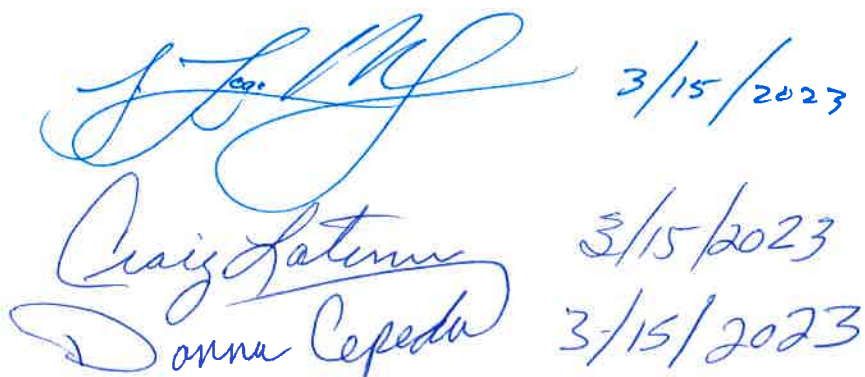 3/15/2023
Craig 3/15/2023
Donna Cepeda 3/15/2023